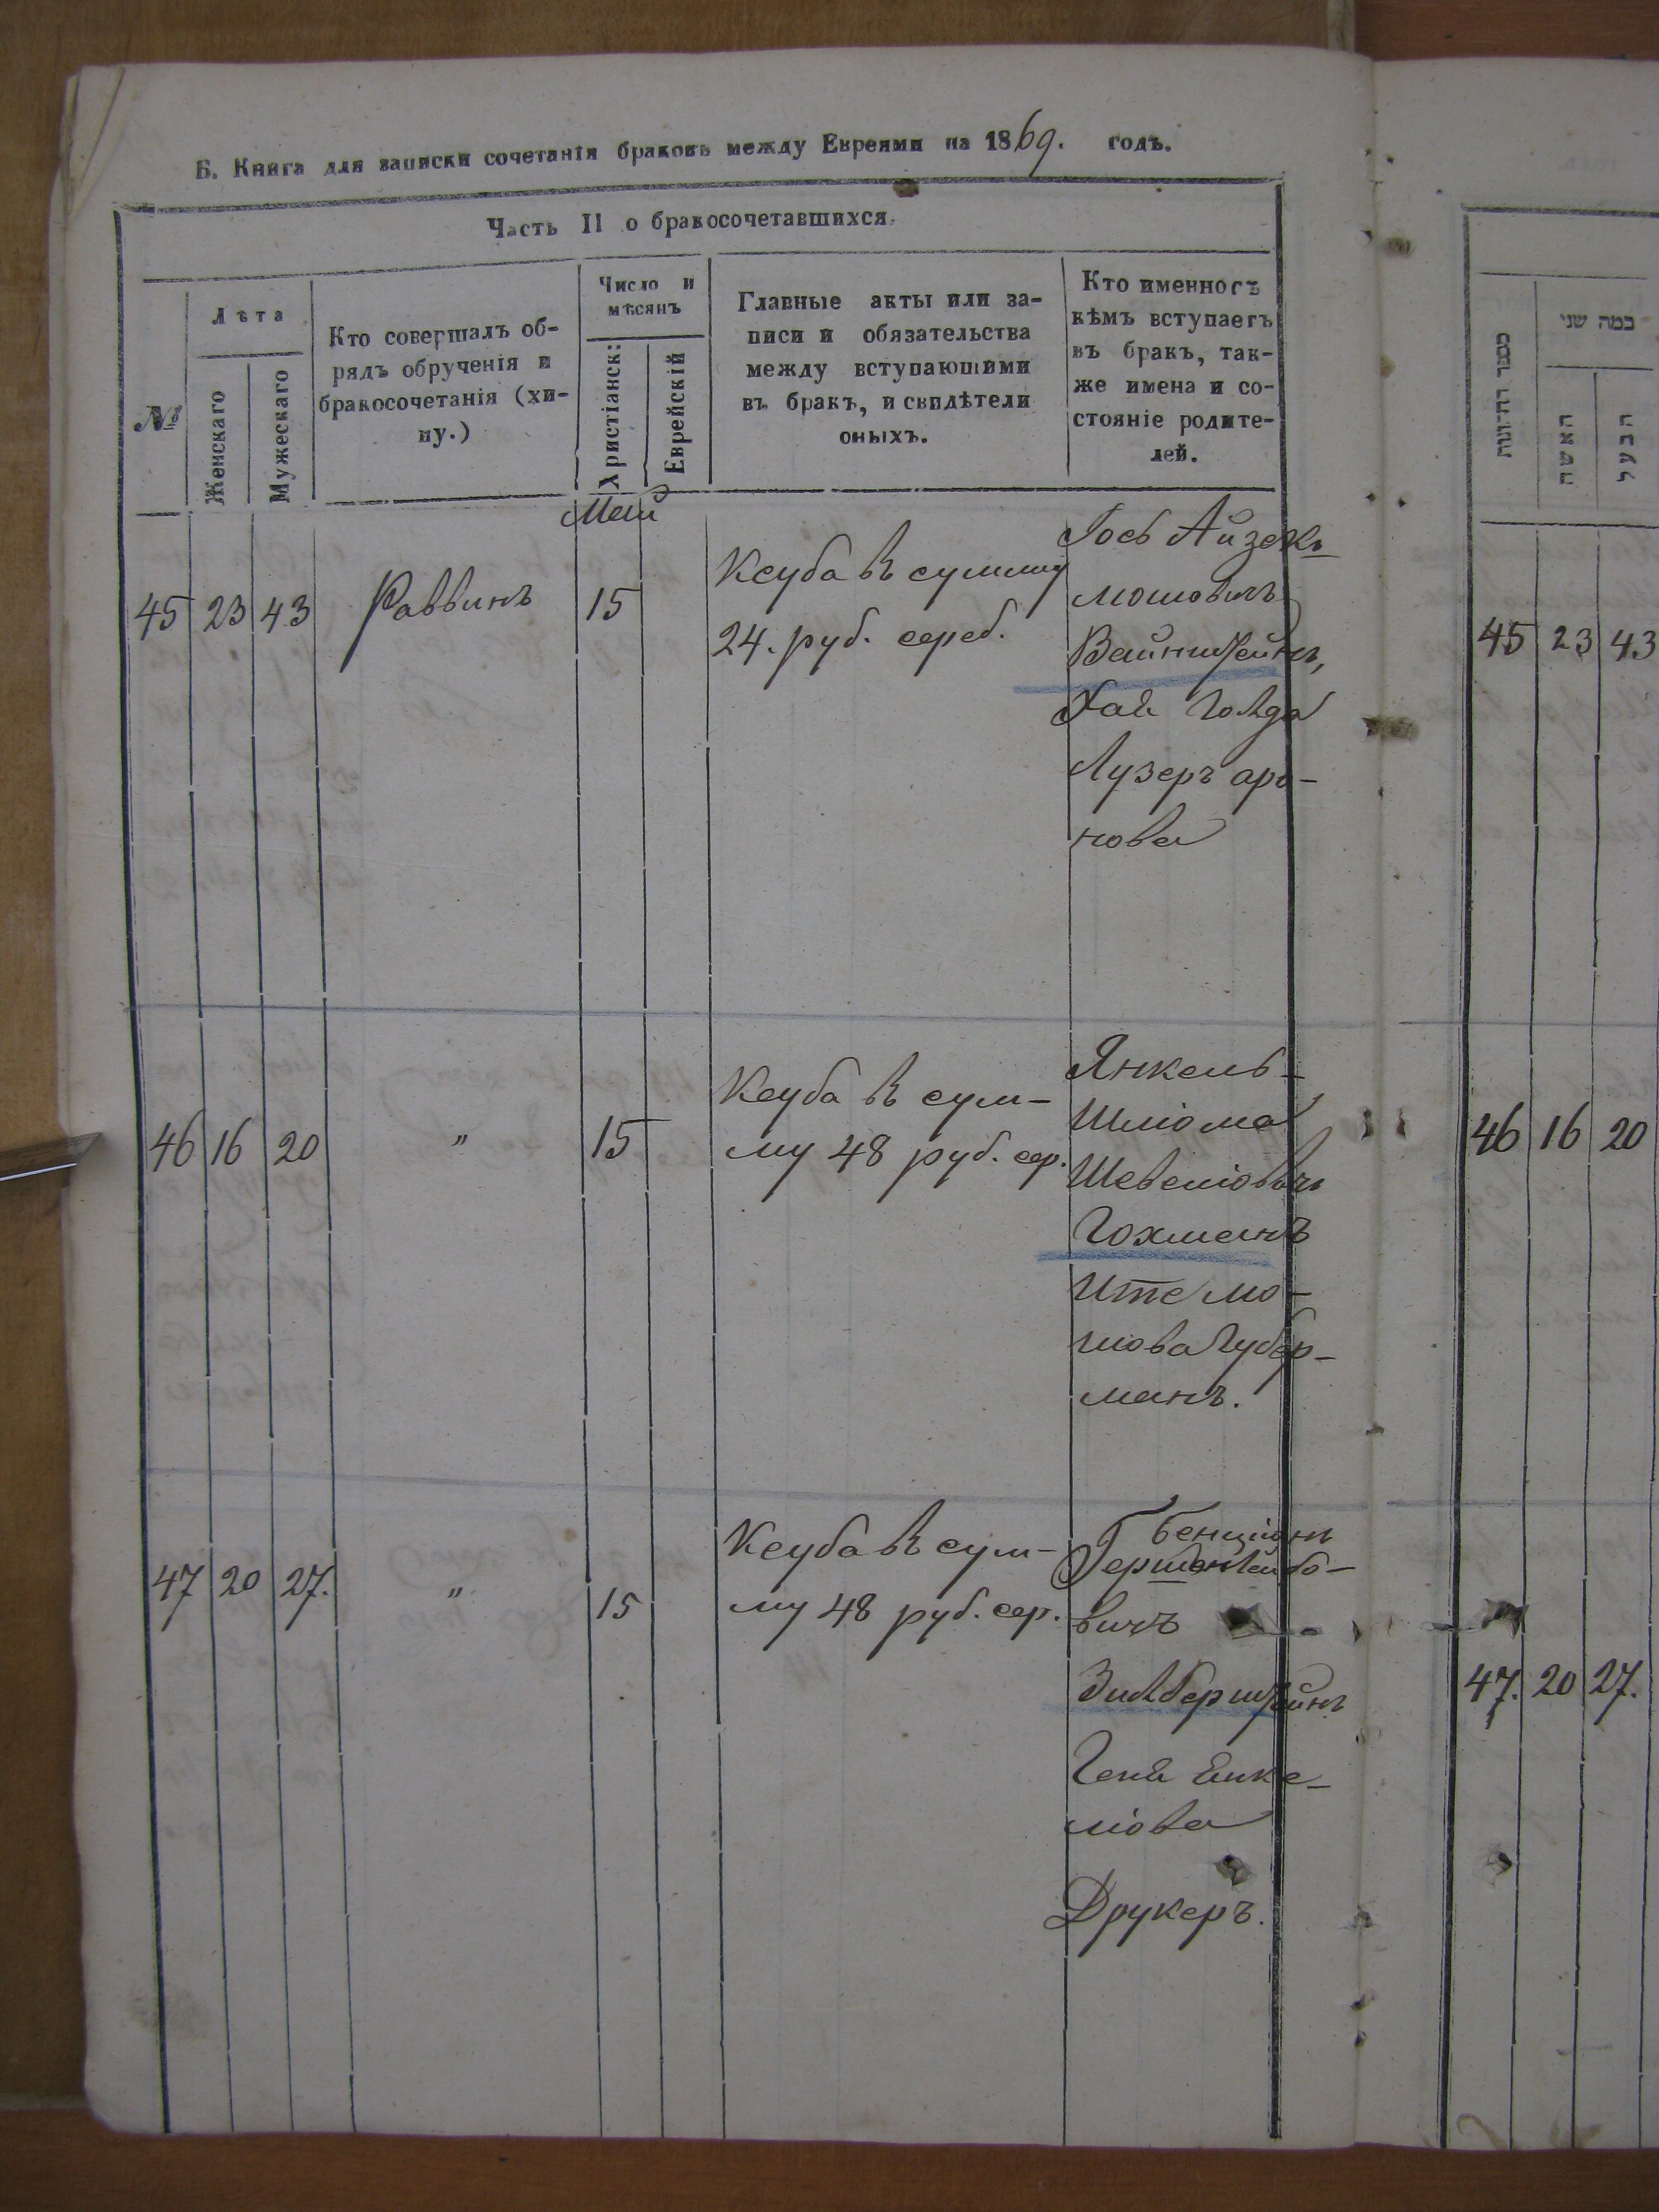 Б. Книга для записки сочетанія браковъ между Евреями на 1869. годъ.
Часть II о бракосочетавшихся.
№
Лѣта
Женскаго
Мужескаго
Кто совершалъ об-
рядъ обрученія и
бракосочетанія (хи-
пу.)
Число и
мѣсяцъ
Христіанск:
Еврейскій
Главные акты или за-
писи и обязательства
между вступающими
въ бракъ, и свидѣтели
оныхъ.
Кто именно съ
кѣмъ вступаетъ
въ бракъ, так-
же имена и со-
стояніе родите-
лей.
Май
45 23 43 Раввинъ 15
Ксуба в сумму
24. руб. сереб.
Іось Айзекъ
мошовичъ
Вайнштейнъ,
Хая Голда
Лузеръ аро-
нова
46 16 20 " 15
Ксуба в сум-
му 48 руб. сер.
Янкель-
Шліома
Шевеліовичъ
Гохманъ
Ите мо-
шова Губер-
манъ.
47 20 27. " 15
Ксуба в сум-
му 48 руб. сер.
Бенціонъ
Гершон Лейбо-
вичъ
Зилберштейнъ
Геня Янке-
ліова
Друкеръ.
כמה שני
האשה
הבעל
45 23 43
46 16 20
47. 20 27.